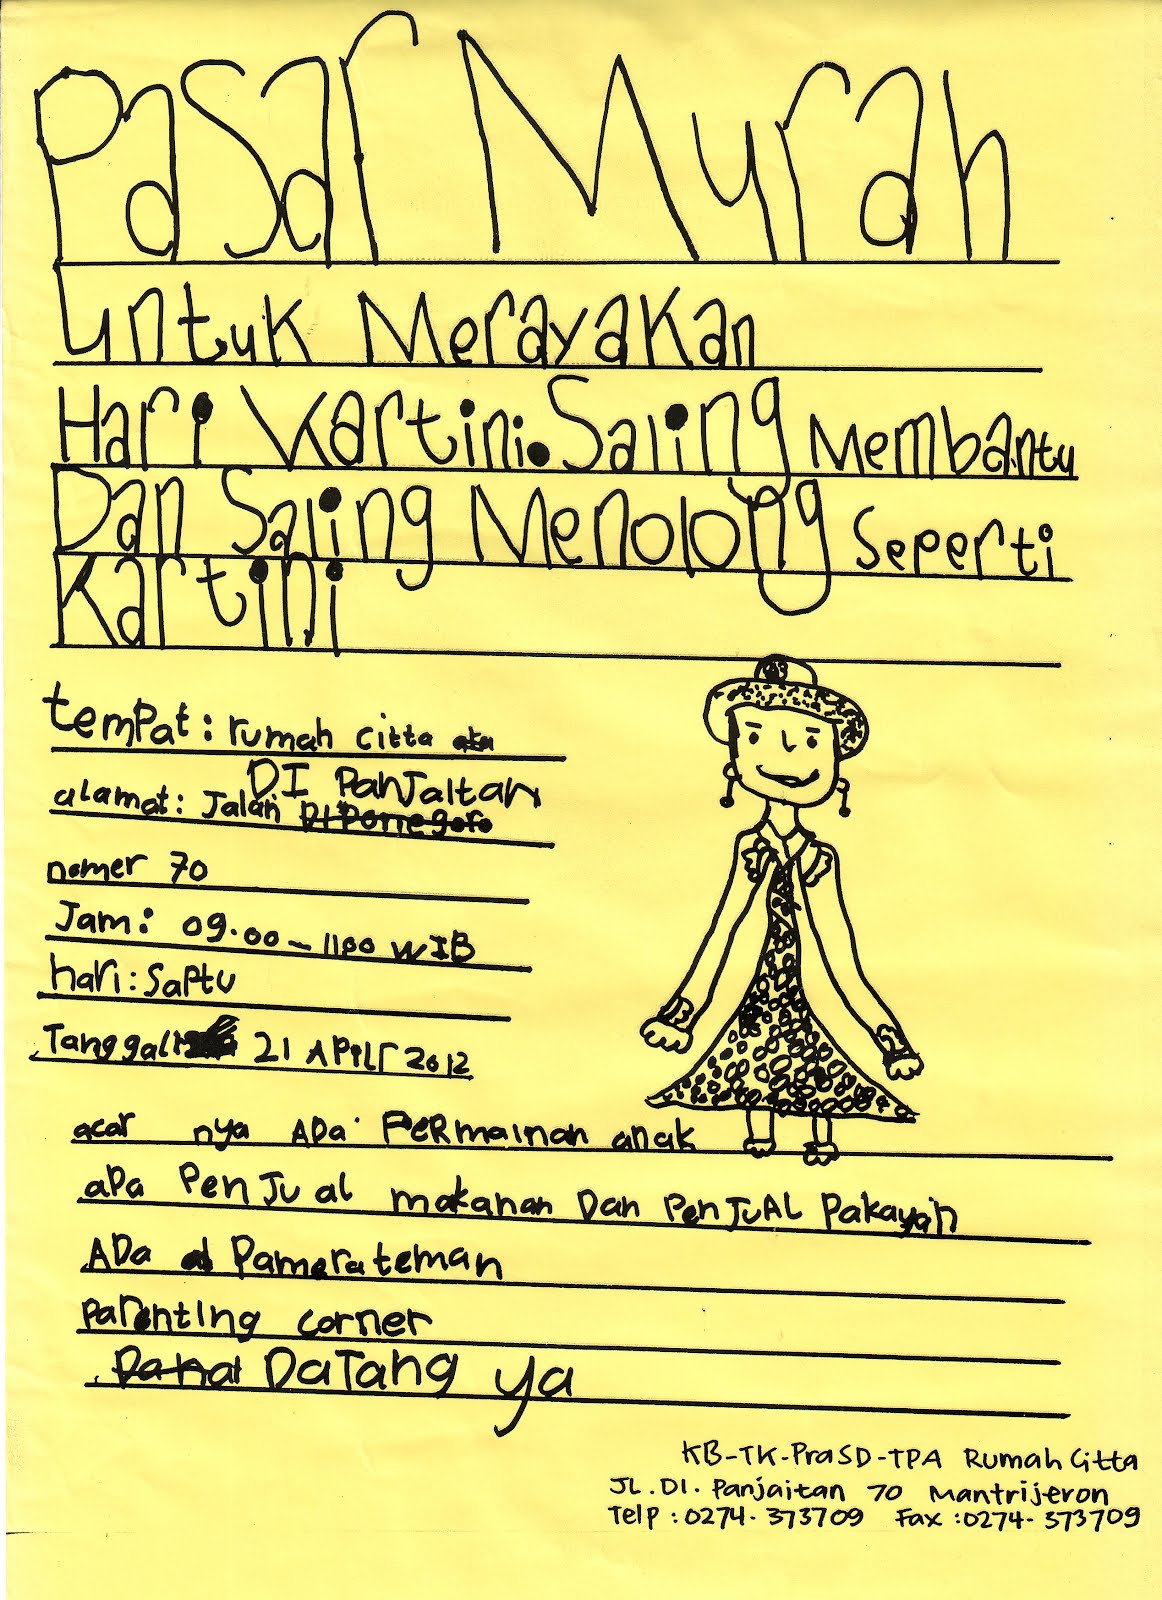 Pasar Murah
Untuk Merayakan
Hari Kartini. Saling Membantu
Dan Saling Menolong Seperti
Kartini
tempat: rumah citta
DI PanJaitan
alamat: Jalan DIPonegoro
nomer 70
Jam: 09.00 - 1100 WIB
hari: Saptu
Tanggal 21 APilr 2012
acar nya ADa PERmainan anak
aDa PenJual makanan Dan PenJuAL Pakayan
ADa Pamerateman
Parenting corner
DaTang ya
KB-TK-PraSD-TPA Rumah Citta
JL. DI. Panjaitan 70 Mantrijeron
Telp : 0274-373709 Fax : 0274-373709